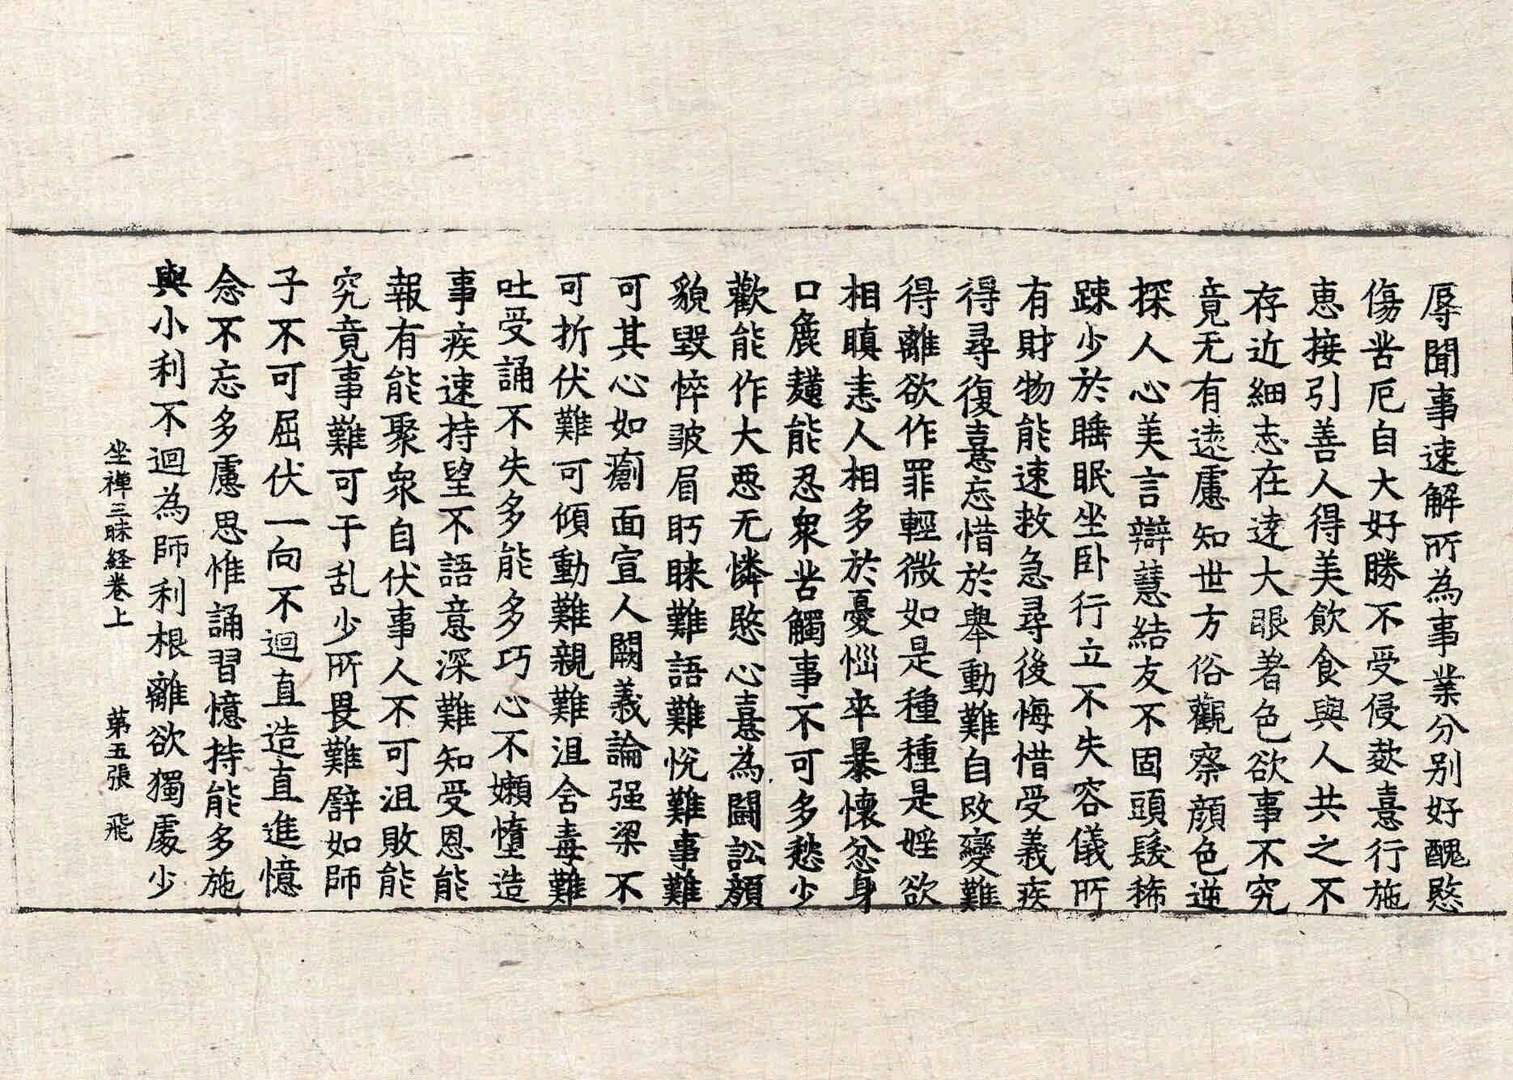 辱聞事速解所為事業分别好醜愍
傷苦厄自大好勝不受侵欺憙行施
恵接引善人得美飲食與人共之不
存近細志在逺大眼著色欲事不究
竟无有逺慮知世方俗觀察顔色逆
探人心美言辯慧結友不固頭髮稀
踈少於睡眠坐卧行立不失容儀所
有財物能速救急尋後悔惜受義疾
得尋復憙忘惜於舉動難自改變難
得離欲作罪輕微如是種種是婬欲
相瞋恚人相多於憂惱卒暴懷忿身
口麁獷能忍衆苦觸事不可多愁少
歡能作大惡无憐愍心憙為鬪訟顔
貌毀悴皺眉眄睞難語難悅難事難
可其心如瘡面宣人闕義論强梁不
可折伏難可傾動難親難沮含毒難
吐受誦不失多能多巧心不嬾惰造
事疾速持望不語意深難知受恩能
報有能聚衆自伏事人不可沮敗能
究竟事難可干乱少所畏難譬如師
子不可屈伏一向不迴直造直進憶
念不忘多慮思惟誦習憶持能多施
與小利不迴為師利根離欲獨處少
坐禪三昧経卷上 苐五張 飛